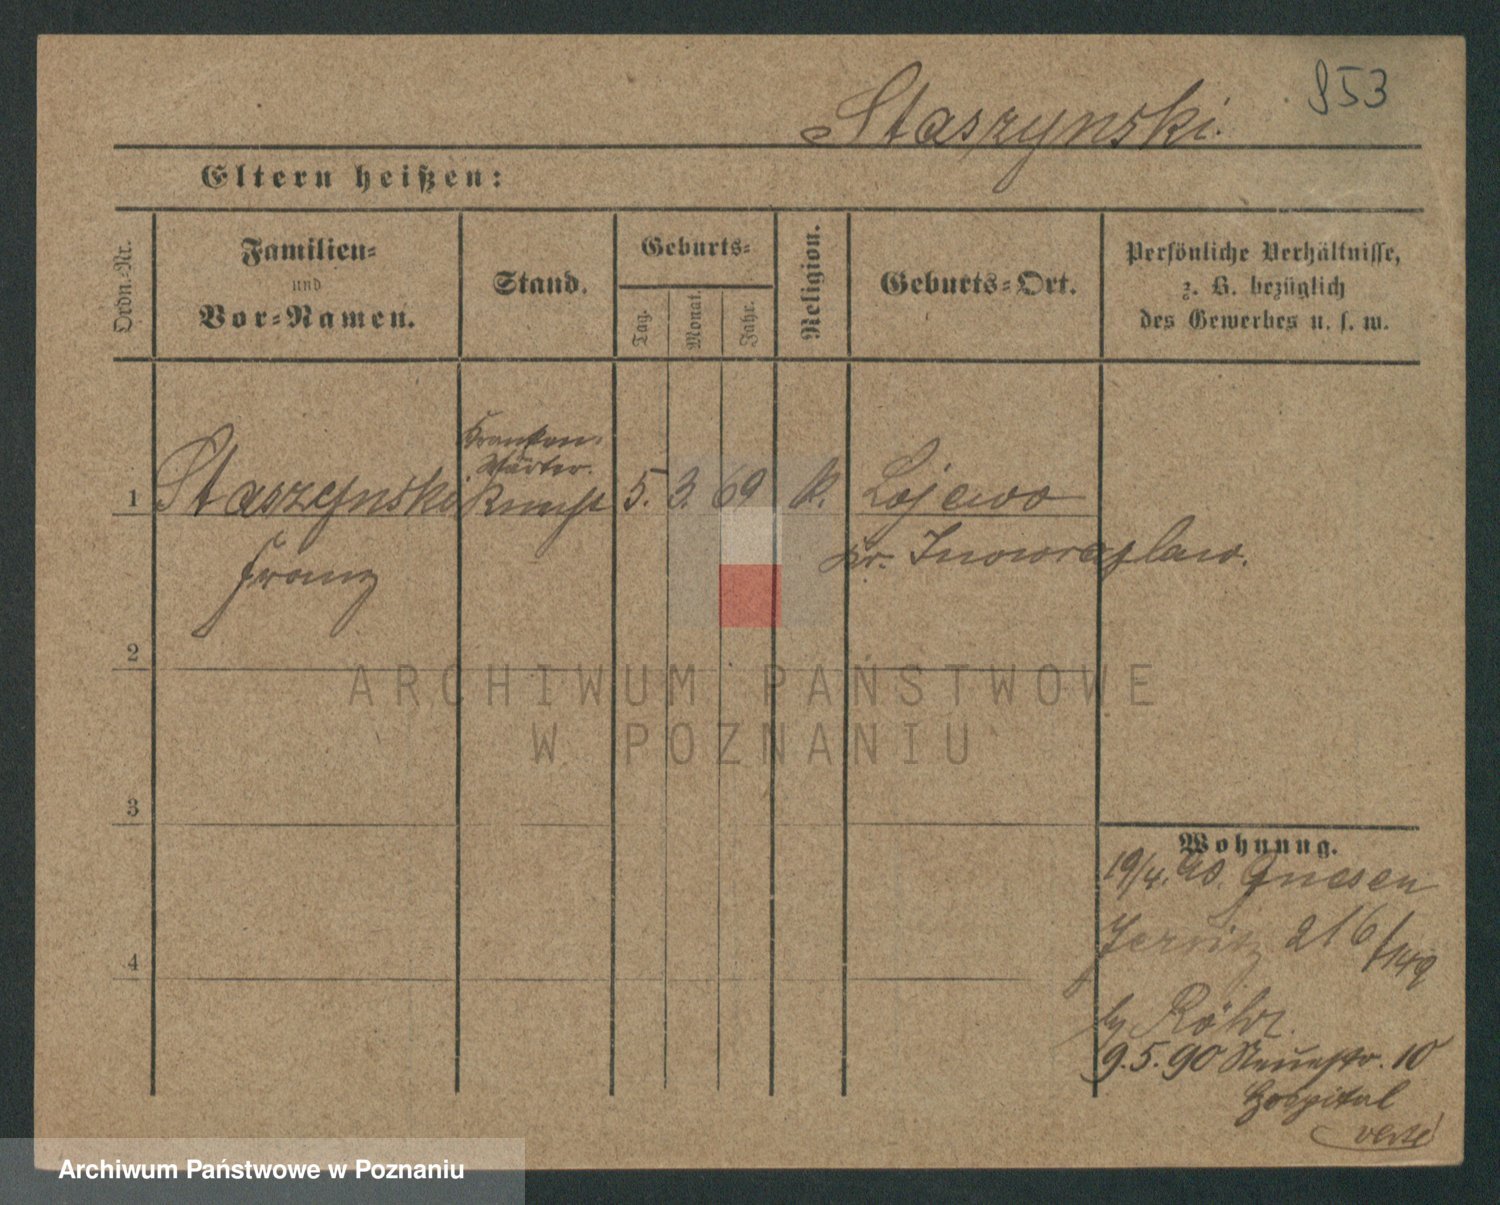 853
Staszynski.
Eltern heißen:
Ordn.-Nr.
Familien-
und
Vor-Namen.
Stand.
Geburts-
Tag.
Monat.
Jahr.
Religion.
Geburts-Ort.
Persönliche Verhältnisse,
z. B. bezüglich
des Gewerbes u. s. w.
Kranken-
Wärter.
1 Staszynski Knecht 5. 3. 69 k. Lojewo
Franz
Kr. Inowrazlaw.
2
3
4
Wohnung.
19/4. 90. Gnesen
Jersitz 216/149
by Röhr.
9.5.90 Neuestr. 10
Hospital
verte!
ARCHIWUM PAŃSTWOWE
W POZNANIU
Archiwum Państwowe w Poznaniu